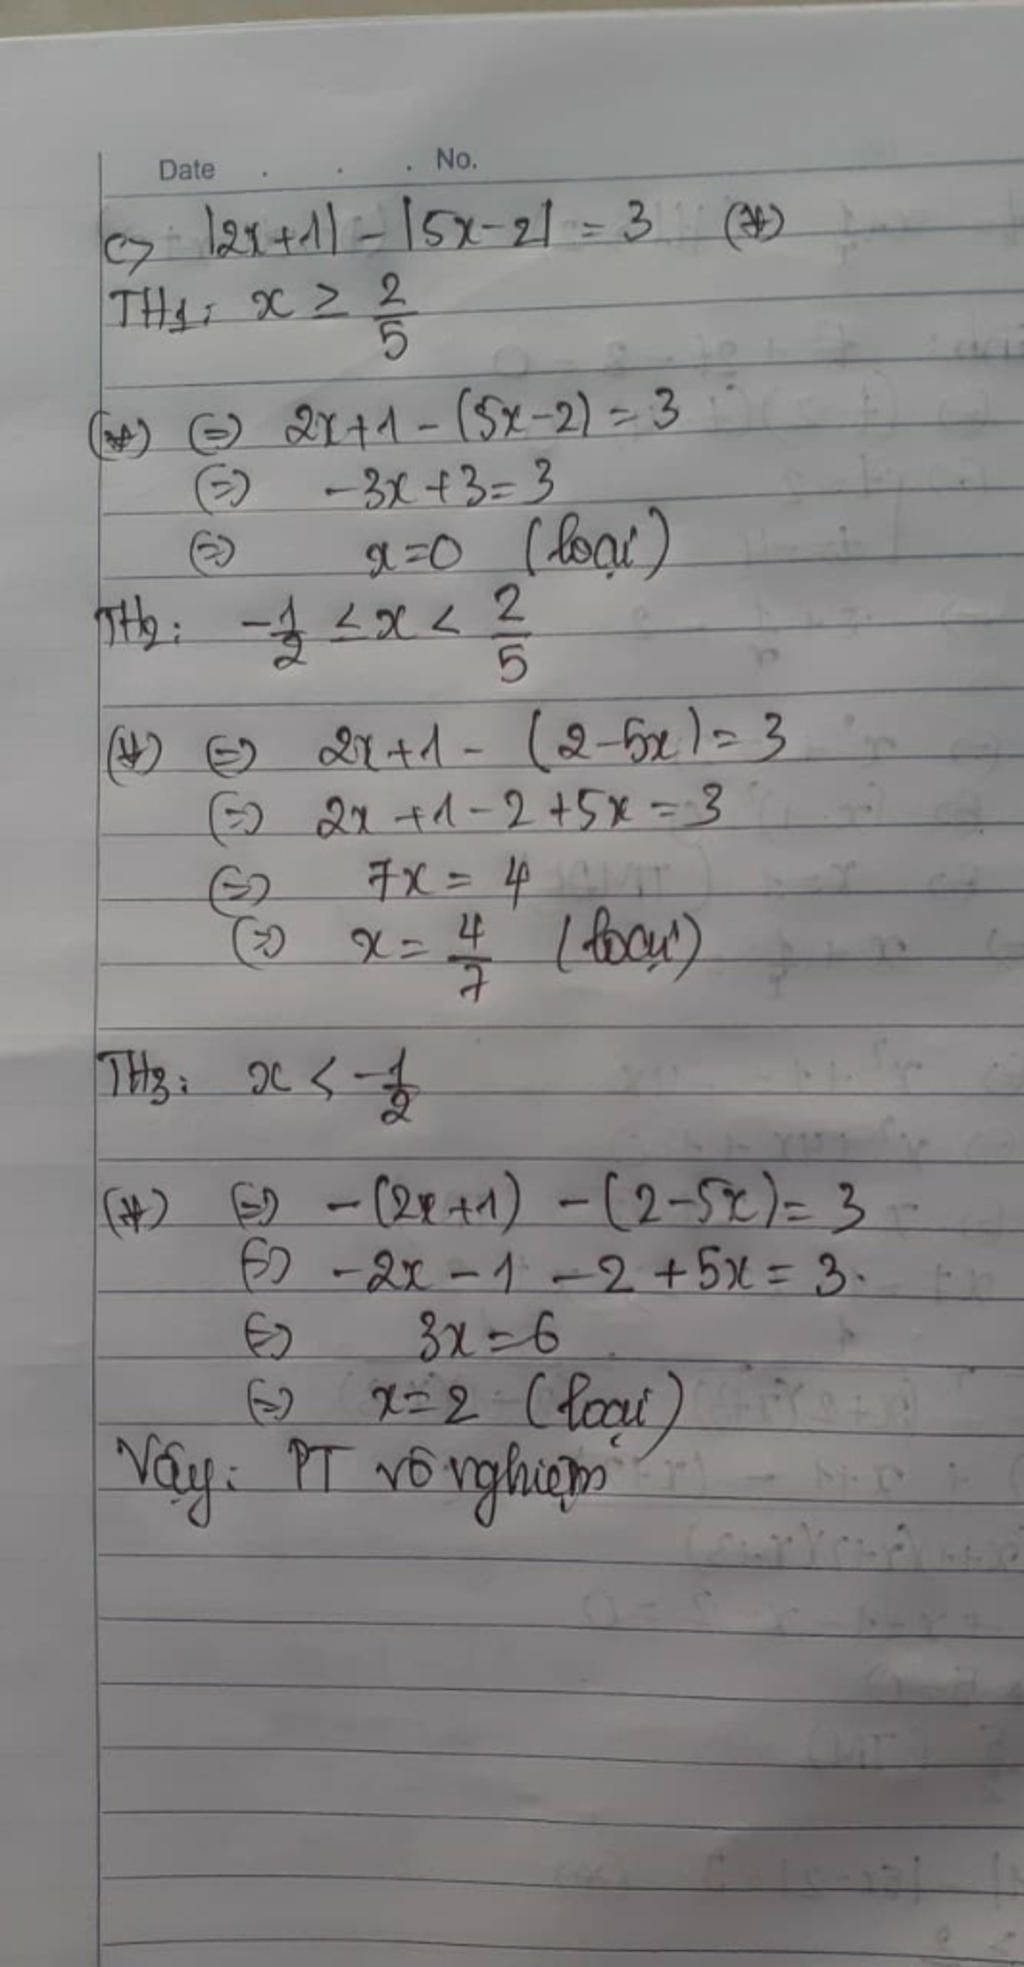 Date . . . No.
c) |2x+1| - |5x-2| = 3 (*)
TH1: x ≥ 2/5
(*) (=) 2x+1 - (5x-2) = 3
(=) -3x+3=3
(=) x=0 (loại)
TH2: -1/2 ≤ x < 2/5
(*) (=) 2x+1 - (2-5x) = 3
(=) 2x+1-2+5x=3
(=) 7x = 4
(=) x = 4/7 (loại)
TH3: x < -1/2
(*) (=) -(2x+1) -(2-5x)= 3
(=) -2x-1-2+5x=3.
(=) 3x=6
(=) x=2 (loại)
Vậy: PT vô nghiệm